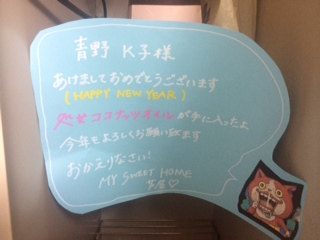 青野 K子様
あけましておめでとうございます
(HAPPY NEW YEAR)
処女ココナッツオイルが手に入ったよ
今年もよろしくお願い致します
おかえりなさい!
MY SWEET HOME
芦屋♡